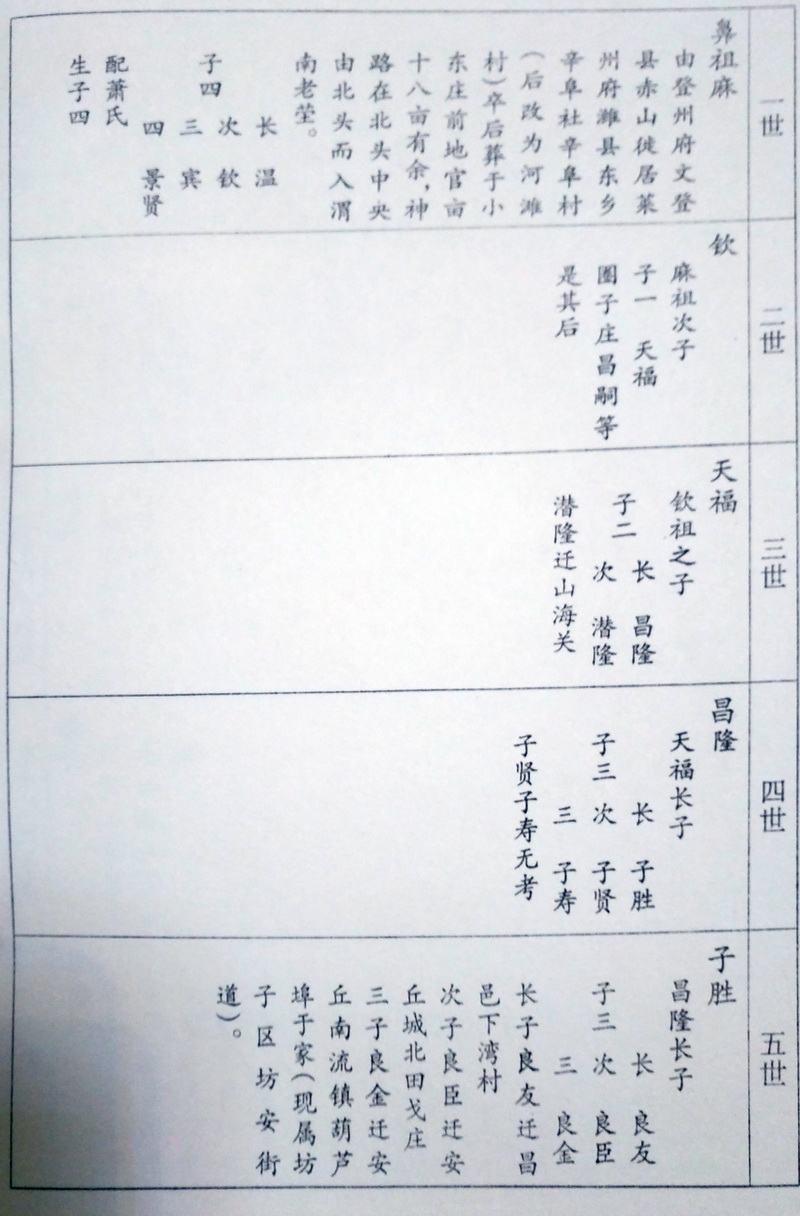 一世
鼻祖麻
由登州府文登
县赤山徙居莱
州府潍县东乡
辛阜社辛阜村
（后改为河滩
村）卒后葬于小
东庄前地官亩
十八亩有余，神
路在北头中央
由北头而入渭
南老茔。
长 温
子四 次 钦
三 宾
四 景贤
配萧氏
生子四
二世
钦
麻祖次子
子一 天福
圈子庄昌嗣等
是其后
三世
天福
钦祖之子
长 昌隆
子二
次 潜隆
潜隆迁山海关
四世
昌隆
天福长子
长 子胜
子三 次 子贤
三 子寿
子贤子寿无考
五世
子胜
昌隆长子
长 良友
子三 次 良臣
三 良金
长子良友迁昌
邑下湾村
次子良臣迁安
丘城北田戈庄
三子良金迁安
丘南流镇葫芦
埠于家（现属坊
子区坊安街
道）。